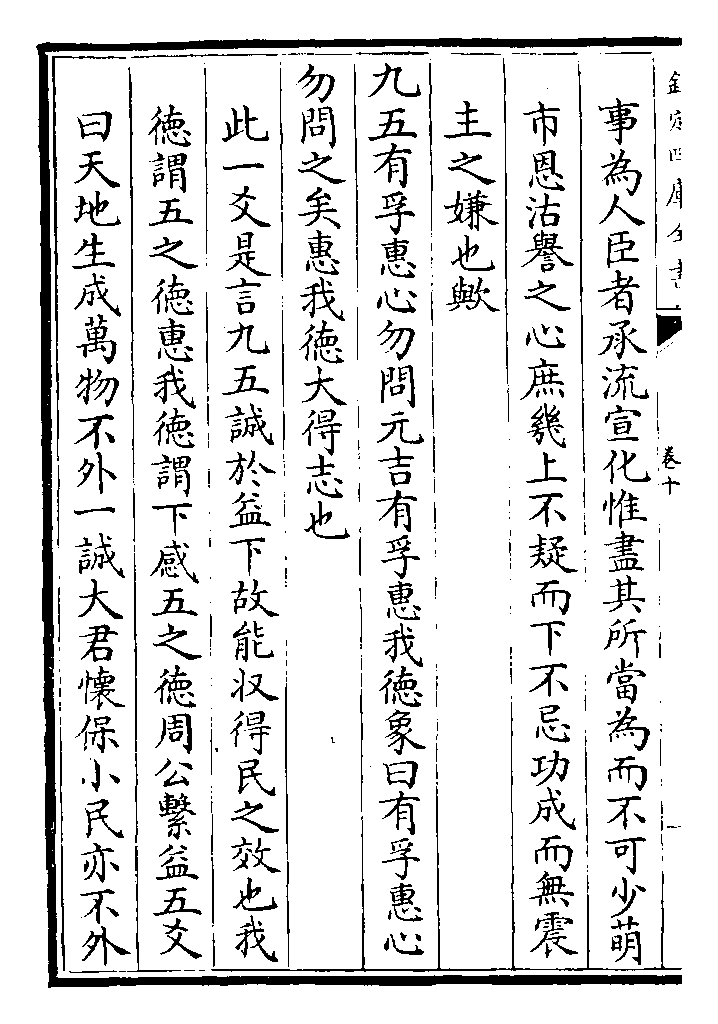 欽定四庫全書
卷十
事為人臣者承流宣化惟盡其所當為而不可少萌
市恩沽譽之心庶幾上不疑而下不忌功成而無震
主之嫌也歟
九五有孚惠心勿問元吉有孚惠我徳象曰有孚惠心
勿問之矣惠我徳大得志也
此一爻是言九五誠於益下故能収得民之效也我
徳謂五之徳惠我徳謂下感五之徳周公繫益五爻
曰天地生成萬物不外一誠大君懐保小民亦不外